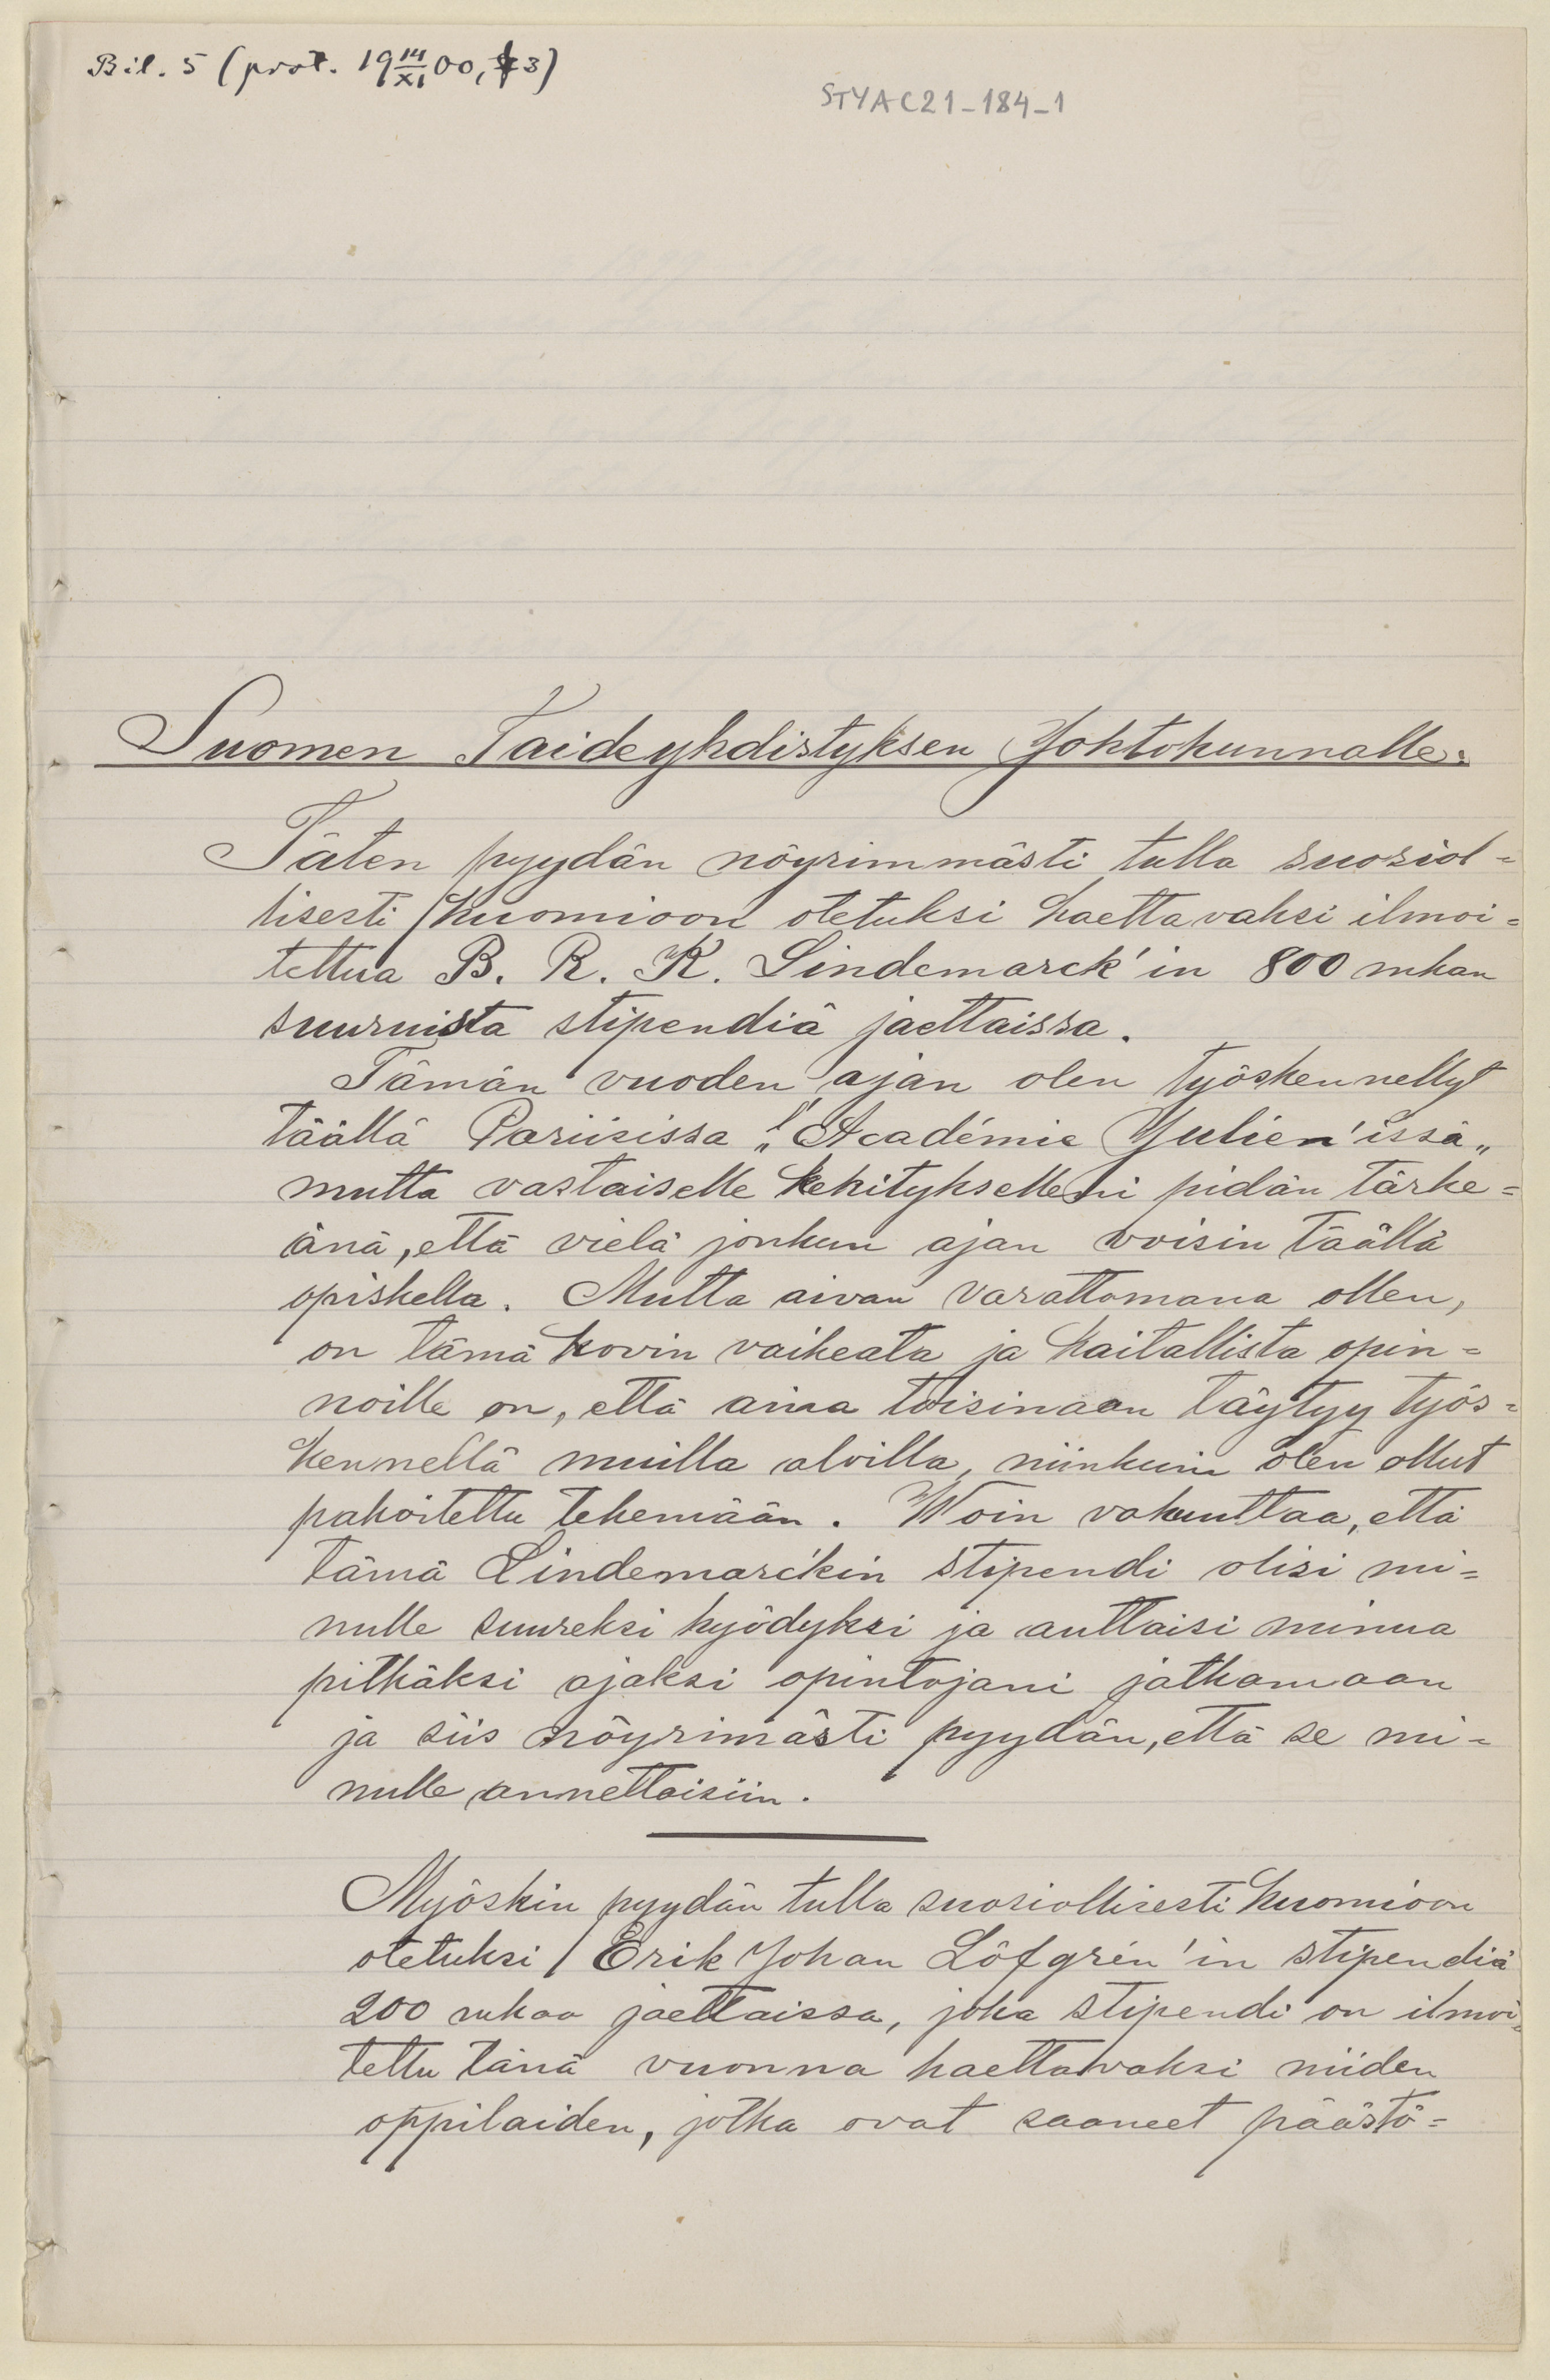 Bil. 5 (prot. 19 14/XI 00, § 3)
STYA C21-184-1
Suomen Taideyhdistyksen Johtokunnalle.
Täten pyydän nöyrimmästi tulla suosiol=
lisesti huomioon otetuksi haettavaksi ilmoi=
tettua B. R. K. Lindemarck'in 800 mkan
suuruista stipendiä jaettaissa.
Tämän vuoden ajan olen työskennellyt
täällä Pariisissa „l'Académie Julien'issä„
mutta vastaiselle kehitykselleni pidän tärke=
änä, että vielä jonkun ajan voisin täällä
opiskella. Mutta aivan varattomana ollen,
on tämä kovin vaikeata ja haitallista opin=
noille on, että aina toisinaan täytyy työs=
kennellä muilla aloilla, niinkuin olen ollut
pakoitettu tekemään. Woin vakuuttaa, että
tämä Lindemarckin stipendi olisi mi=
nulle suureksi hyödyksi ja auttaisi minua
pitkäksi ajaksi opintojani jatkamaan
ja siis nöyrimästi pyydän, että se mi=
nulle annettaisiin.
Myöskin pyydän tulla suosiollisesti huomioon
otetuksi / Erik Johan Löfgrén'in stipendiä
200 mkaa jaettaissa, joka stipendi on ilmoi=
tettu tänä vuonna haettavaksi niiden
oppilaiden, jotka ovat saaneet päästö=